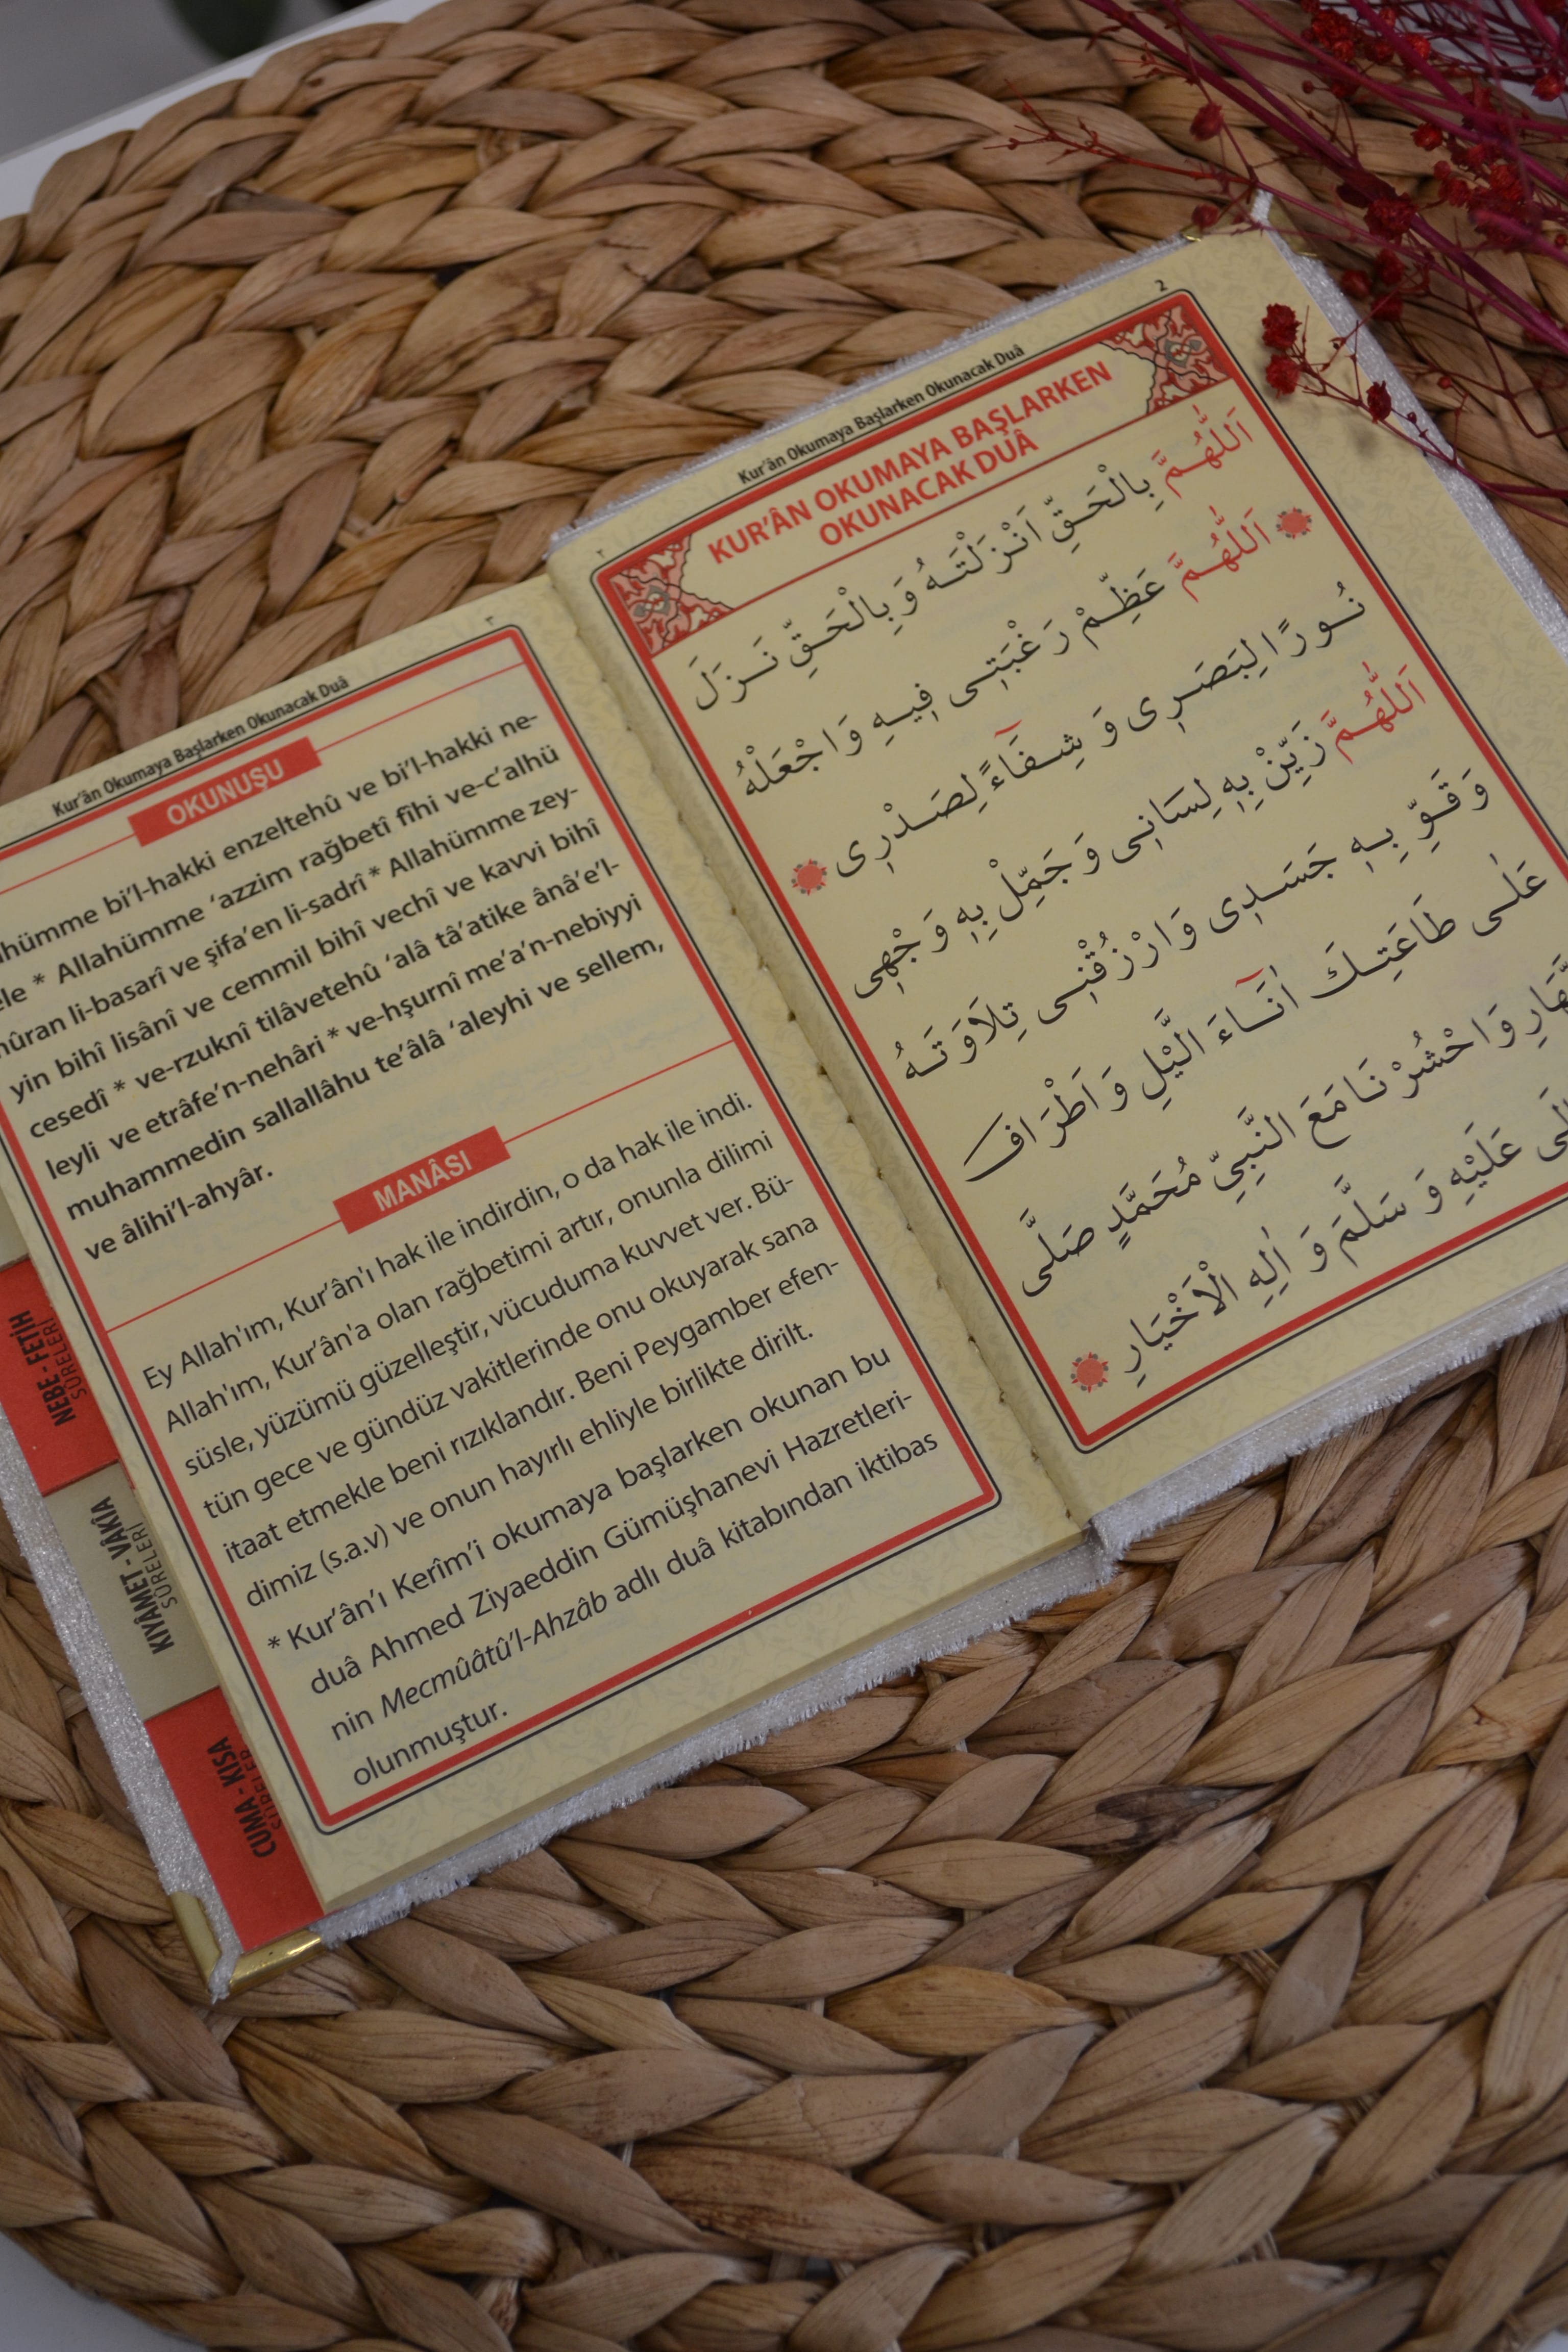 2
٢
Kur'ân Okumaya Başlarken Okunacak Duâ
KUR'ÂN OKUMAYA BAŞLARKEN
OKUNACAK DUÂ
اَللّٰهُمَّ بِالْحَقِّ اَنْزَلْتَهُ وَ بِالْحَقِّ نَزَلَ
اَللّٰهُمَّ عَظِّمْ رَغْبَتِى فِيهِ وَاجْعَلْهُ
نُورًا لِبَصَرِى وَ شِفَاءً لِصَدْرِى
اَللّٰهُمَّ زَيِّنْ بِهِ لِسَانِى وَ جَمِّلْ بِهِ وَجْهِى
وَ قَوِّ بِهِ جَسَدِى وَارْزُقْنِى تِلَاوَتَهُ
عَلٰى طَاعَتِكَ اٰنَاءَ الَّيْلِ وَ اَطْرَافَ
وَاحْشُرْنَا مَعَ النَّبِىِّ مُحَمَّدٍ صَلَّى
عَلَيْهِ وَ سَلَّمَ وَ اٰلِهِ الْاَخْيَارِ
٣
Kur'ân Okumaya Başlarken Okunacak Duâ
OKUNUŞU
bi'l-hakki enzeltehû ve bi'l-hakki ne-
* Allahümme 'azzim rağbetî fîhi ve-c'alhü
li-basarî ve şifa'en li-sadrî * Allahümme zey-
yin bihî lisânî ve cemmil bihî vechî ve kavvi bihî
cesedî * ve-rzuknî tilâvetehû 'alâ tâ'atike ânâ'e'l-
leyli ve etrâfe'n-nehâri * ve-hşurnî me'a'n-nebiyyi
muhammedin sallallâhu te'âlâ 'aleyhi ve sellem,
ve âlihi'l-ahyâr.
MANÂSI
Ey Allah'ım, Kur'ân'ı hak ile indirdin, o da hak ile indi.
Allah'ım, Kur'ân'a olan rağbetimi artır, onunla dilimi
süsle, yüzümü güzelleştir, vücuduma kuvvet ver. Bü-
tün gece ve gündüz vakitlerinde onu okuyarak sana
itaat etmekle beni rızıklandır. Beni Peygamber efen-
dimiz (s.a.v) ve onun hayırlı ehliyle birlikte dirilt.
* Kur'ân'ı Kerîm'i okumaya başlarken okunan bu
duâ Ahmed Ziyaeddin Gümüşhanevi Hazretleri-
nin Mecmûâtû'l-Ahzâb adlı duâ kitabından iktibas
olunmuştur.
NEBE - FETİH
SÛRELERİ
KIYÂMET - VÂKIA
SÛRELERİ
CUMA - KISA